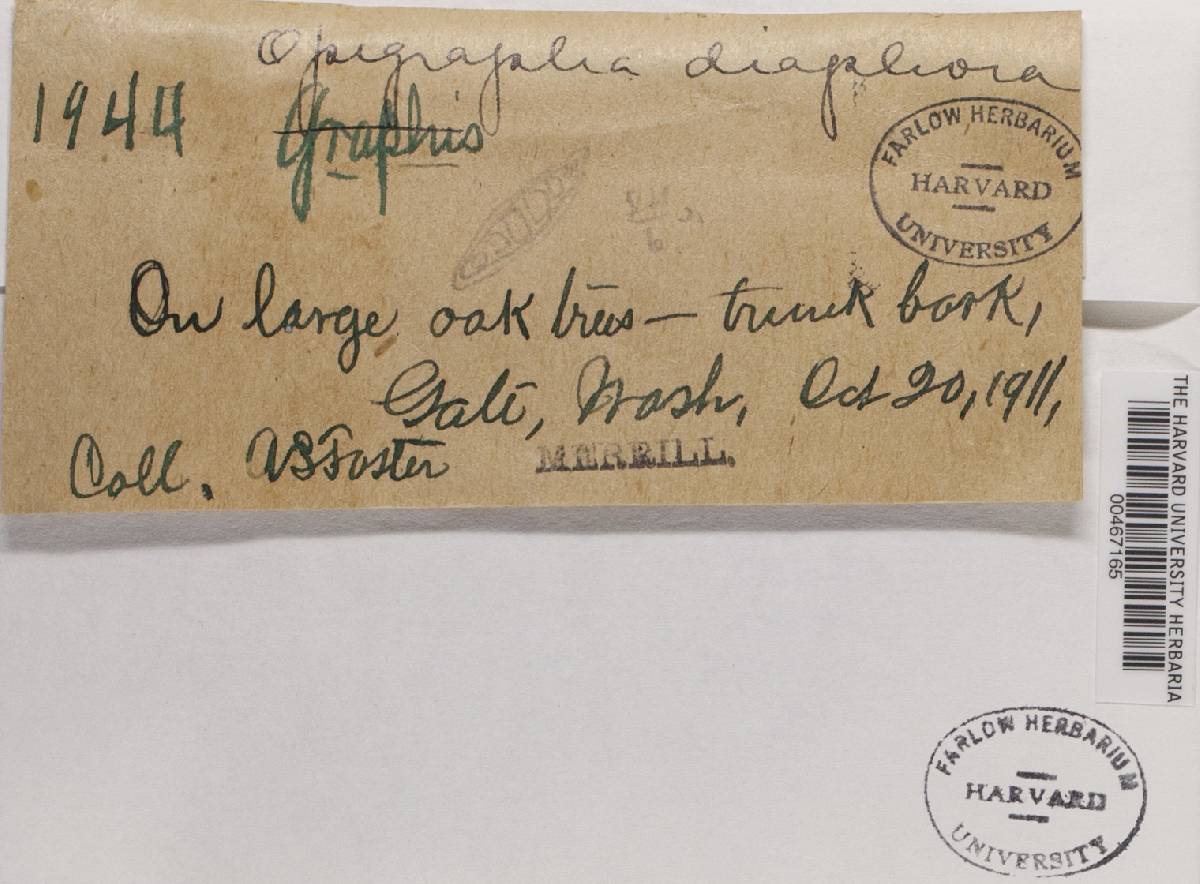 Opegrapha diaphora
1944 Graphis
FARLOW HERBARIUM
HARVARD
UNIVERSITY
On large oak trees — trunk bark,
Gate, Wash, Oct 20, 1911,
Coll. AS Foster MERRILL.
THE HARVARD UNIVERSITY HERBARIA
00467165
FARLOW HERBARIUM
HARVARD
UNIVERSITY